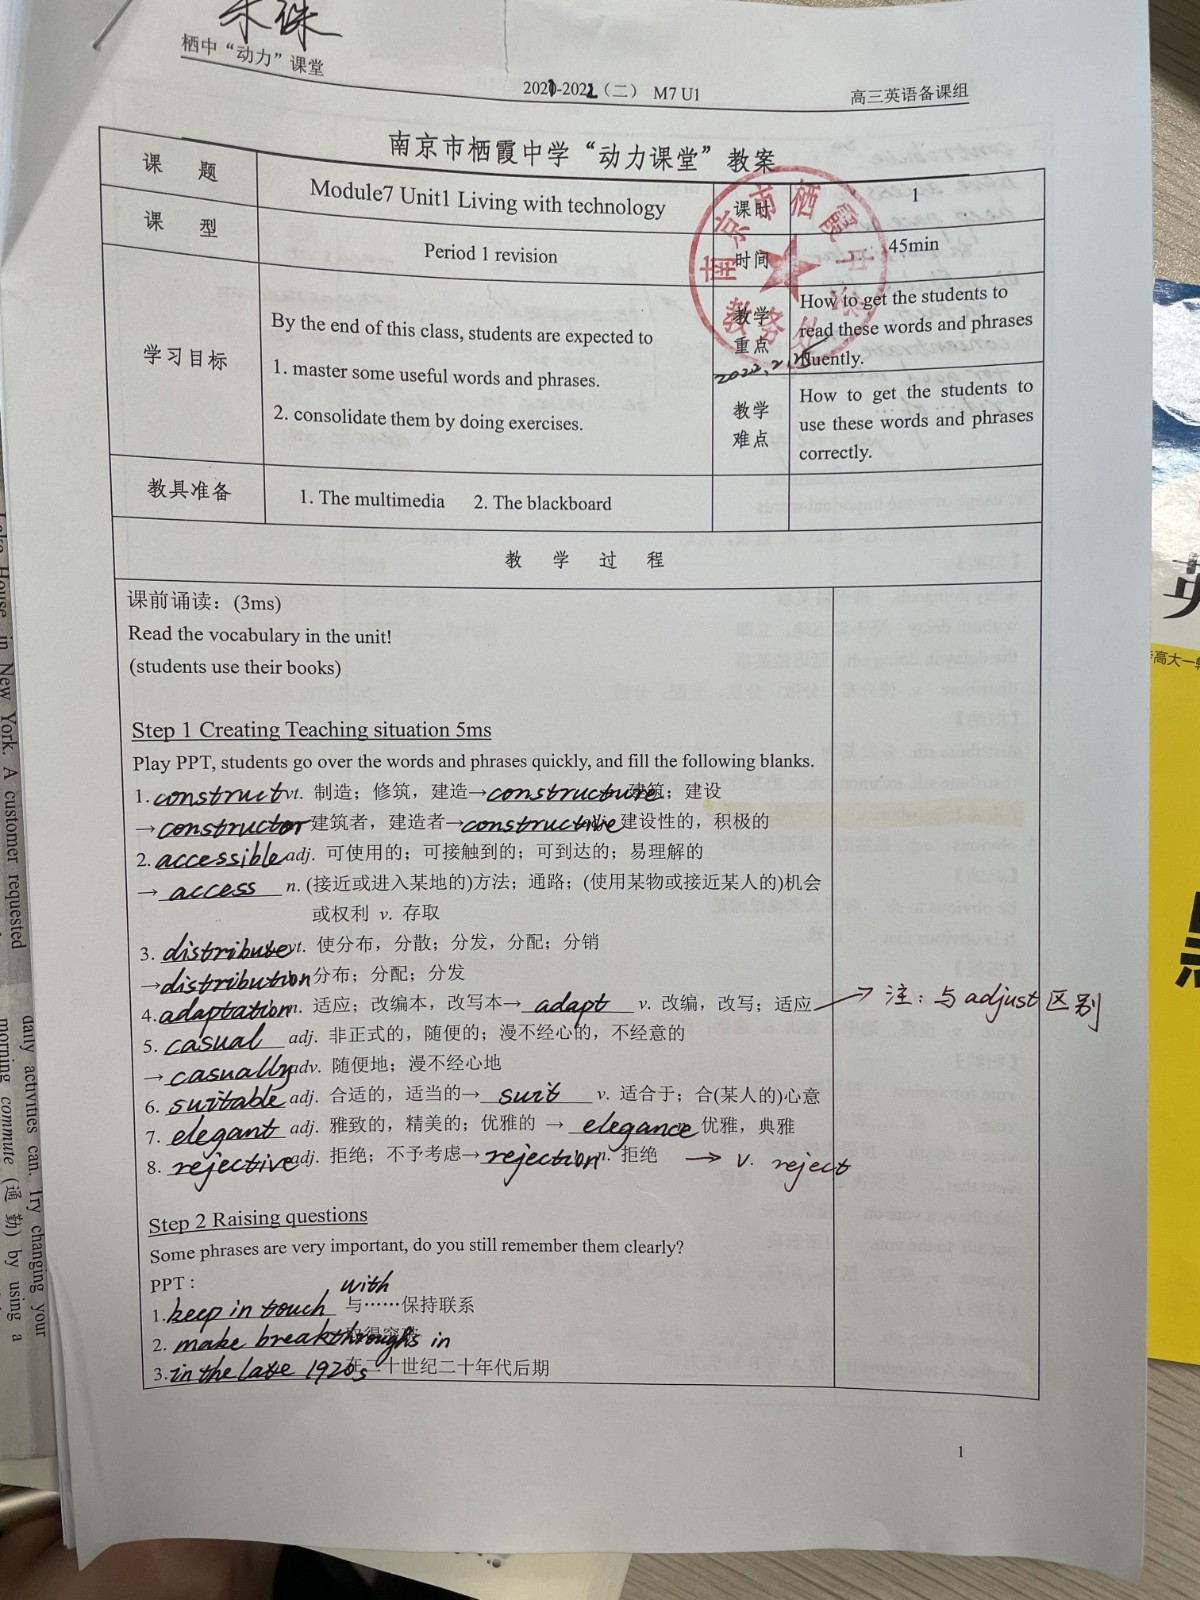 朱珠
栖中“动力”课堂
2021-2022（二） M7 U1
高三英语备课组
南京市栖霞中学“动力课堂”教案
课 题
Module7 Unit1 Living with technology
课时
1
课 型
Period 1 revision
时间
45min
学习目标
By the end of this class, students are expected to
1. master some useful words and phrases.
2. consolidate them by doing exercises.
教学
重点
How to get the students to
read these words and phrases
fluently.
2022.2.15
教学
难点
How to get the students to
use these words and phrases
correctly.
南京市栖霞中学
教具准备
1. The multimedia 2. The blackboard
教 学 过 程
课前诵读：(3ms)
Read the vocabulary in the unit!
(students use their books)
Step 1 Creating Teaching situation 5ms
Play PPT, students go over the words and phrases quickly, and fill the following blanks.
1. construct vt. 制造；修筑，建造→constructure 建筑；建设
→constructor 建筑者，建造者→constructive 建设性的，积极的
2. accessible adj. 可使用的；可接触到的；可到达的；易理解的
→ access n. (接近或进入某地的)方法；通路；(使用某物或接近某人的)机会
或权利 v. 存取
3. distribute vt. 使分布，分散；分发，分配；分销
→distribution 分布；分配；分发
4. adaptation n. 适应；改编本，改写本→ adapt v. 改编，改写；适应 → 注：与adjust区别
5. casual adj. 非正式的，随便的；漫不经心的，不经意的
→casually adv. 随便地；漫不经心地
6. suitable adj. 合适的，适当的→ suit v. 适合于；合(某人的)心意
7. elegant adj. 雅致的，精美的；优雅的 → elegance 优雅，典雅
8. rejective adj. 拒绝；不予考虑→rejection n. 拒绝 → v. reject
Step 2 Raising questions
Some phrases are very important, do you still remember them clearly?
PPT :
1. keep in touch with 与……保持联系
2. make breakthroughs in 取得突破
3. in the late 1920s 在二十世纪二十年代后期
1
Lake House in New York. A customer requested
daily activities can. Try changing your
morning commute (通勤) by using a
英